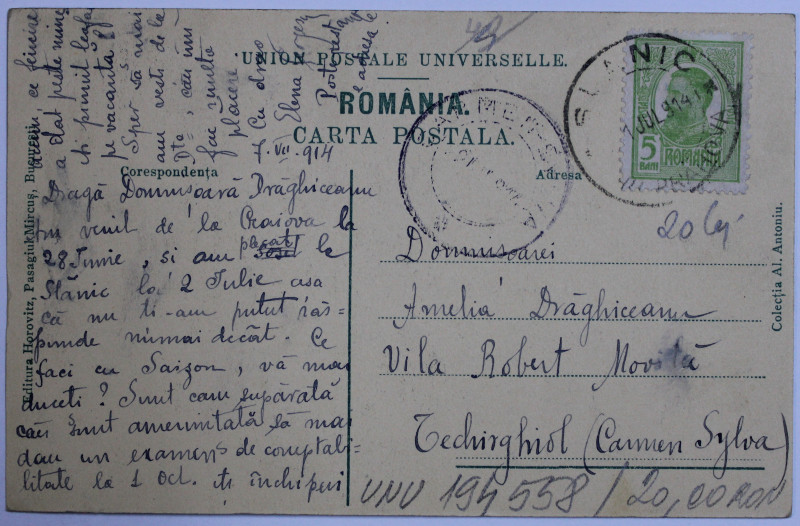 UNION POSTALE UNIVERSELLE.
ROMÂNIA.
CARTA POSTALA.
Corespondența
Adresa
Dragă Domnișoară Drăghiceanu
Am venit de la Craiova la
28 Iunie, și am plecat la
Slănic la 2 Iulie așa
că nu ți-am putut răs-
punde numai decât. Ce
faci cu Saizon, vă mai
duceți? Sunt cam supărată
căci sunt amenințată să mai
dau un examen de comptabi-
litate la 1 Oct. îți închipui
ce fericire
a dat peste mine
și primul
pe vacanță
Sper să mai
am vești de la
Dta, căci îmi
fac multă
plăcere
Cu drag
Elena
Postrestant
7. VII. 914
Domnișoarei
Amelia Drăghiceanu
Vila Robert Movilă
Techirghiol (Carmen Sylva)
SLANIC
JUL 914
PRAHOVA
5
BANI
ROMANIA
20 lei
VNV 194558 / 20,00 RON
Editura Horovitz, Pasagiul Mircuș, București
Colecția Al. Antoniu.